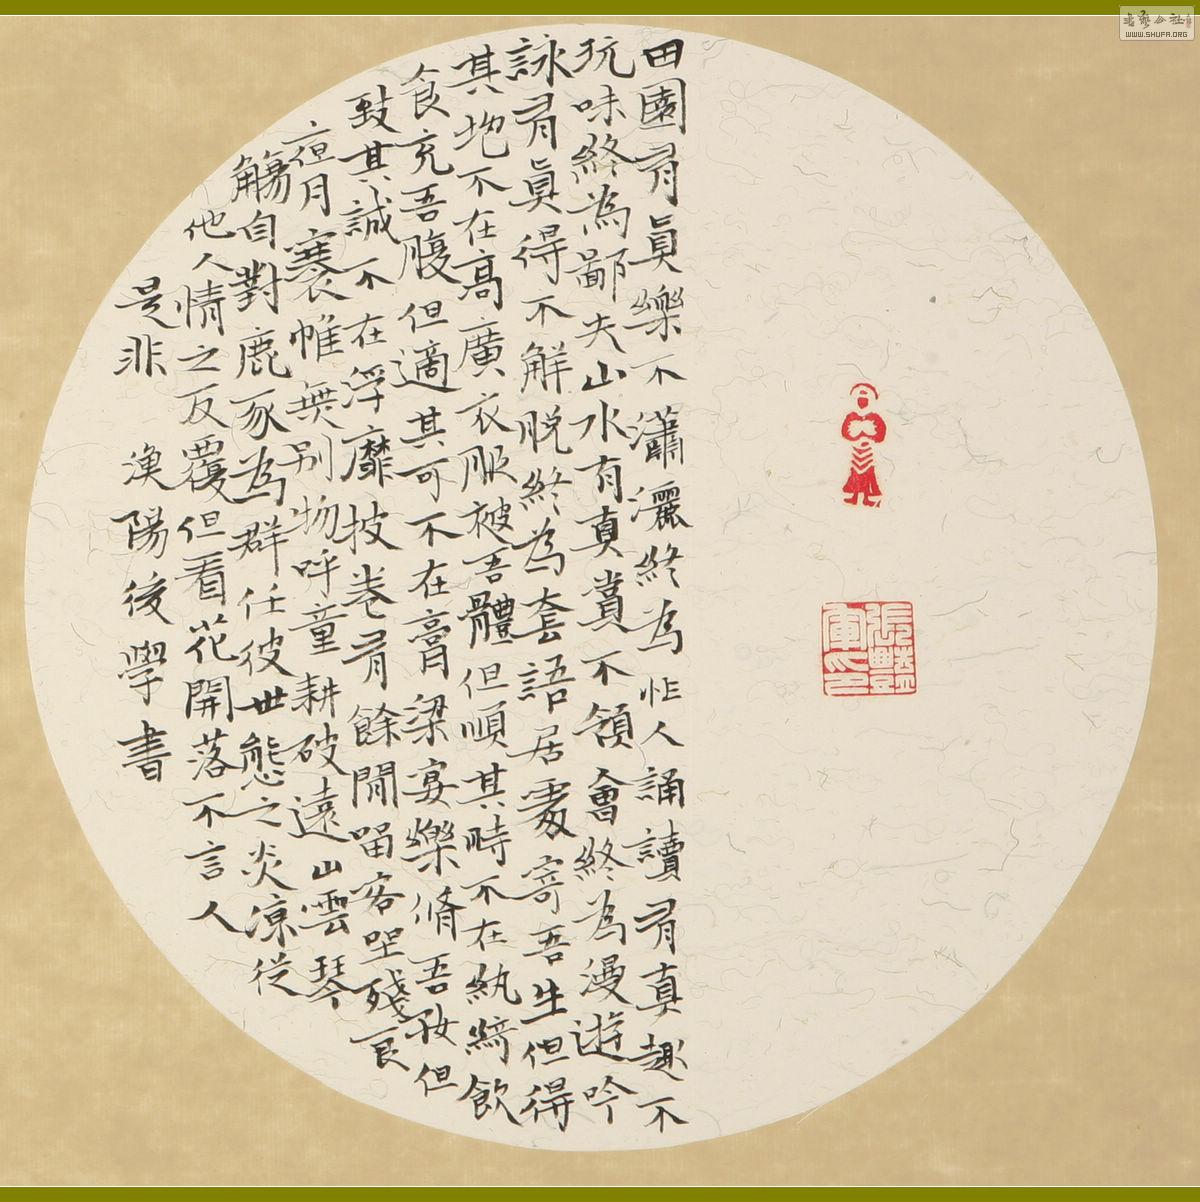 田園有眞樂不瀟灑終為忙人誦讀有真趣不
玩味終為鄙夫山水有真賞不領會終為漫遊吟
詠有眞得不解脱終為套語居處寄吾生但得
其地不在高廣衣服被吾體但順其時不在紈綺飲
食充吾腹但適其可不在膏梁宴樂脩吾好但
致其誠不在浮靡披卷有餘閒留客坐殘良
亱月褰帷無别物呼童耕破遠山雲琴
觴自對鹿豕為群任彼世態之炎凉從
他人情之反覆但看花開落不言人
是非 漁陽後學書
书艺公社
WWW.SHUFA.ORG